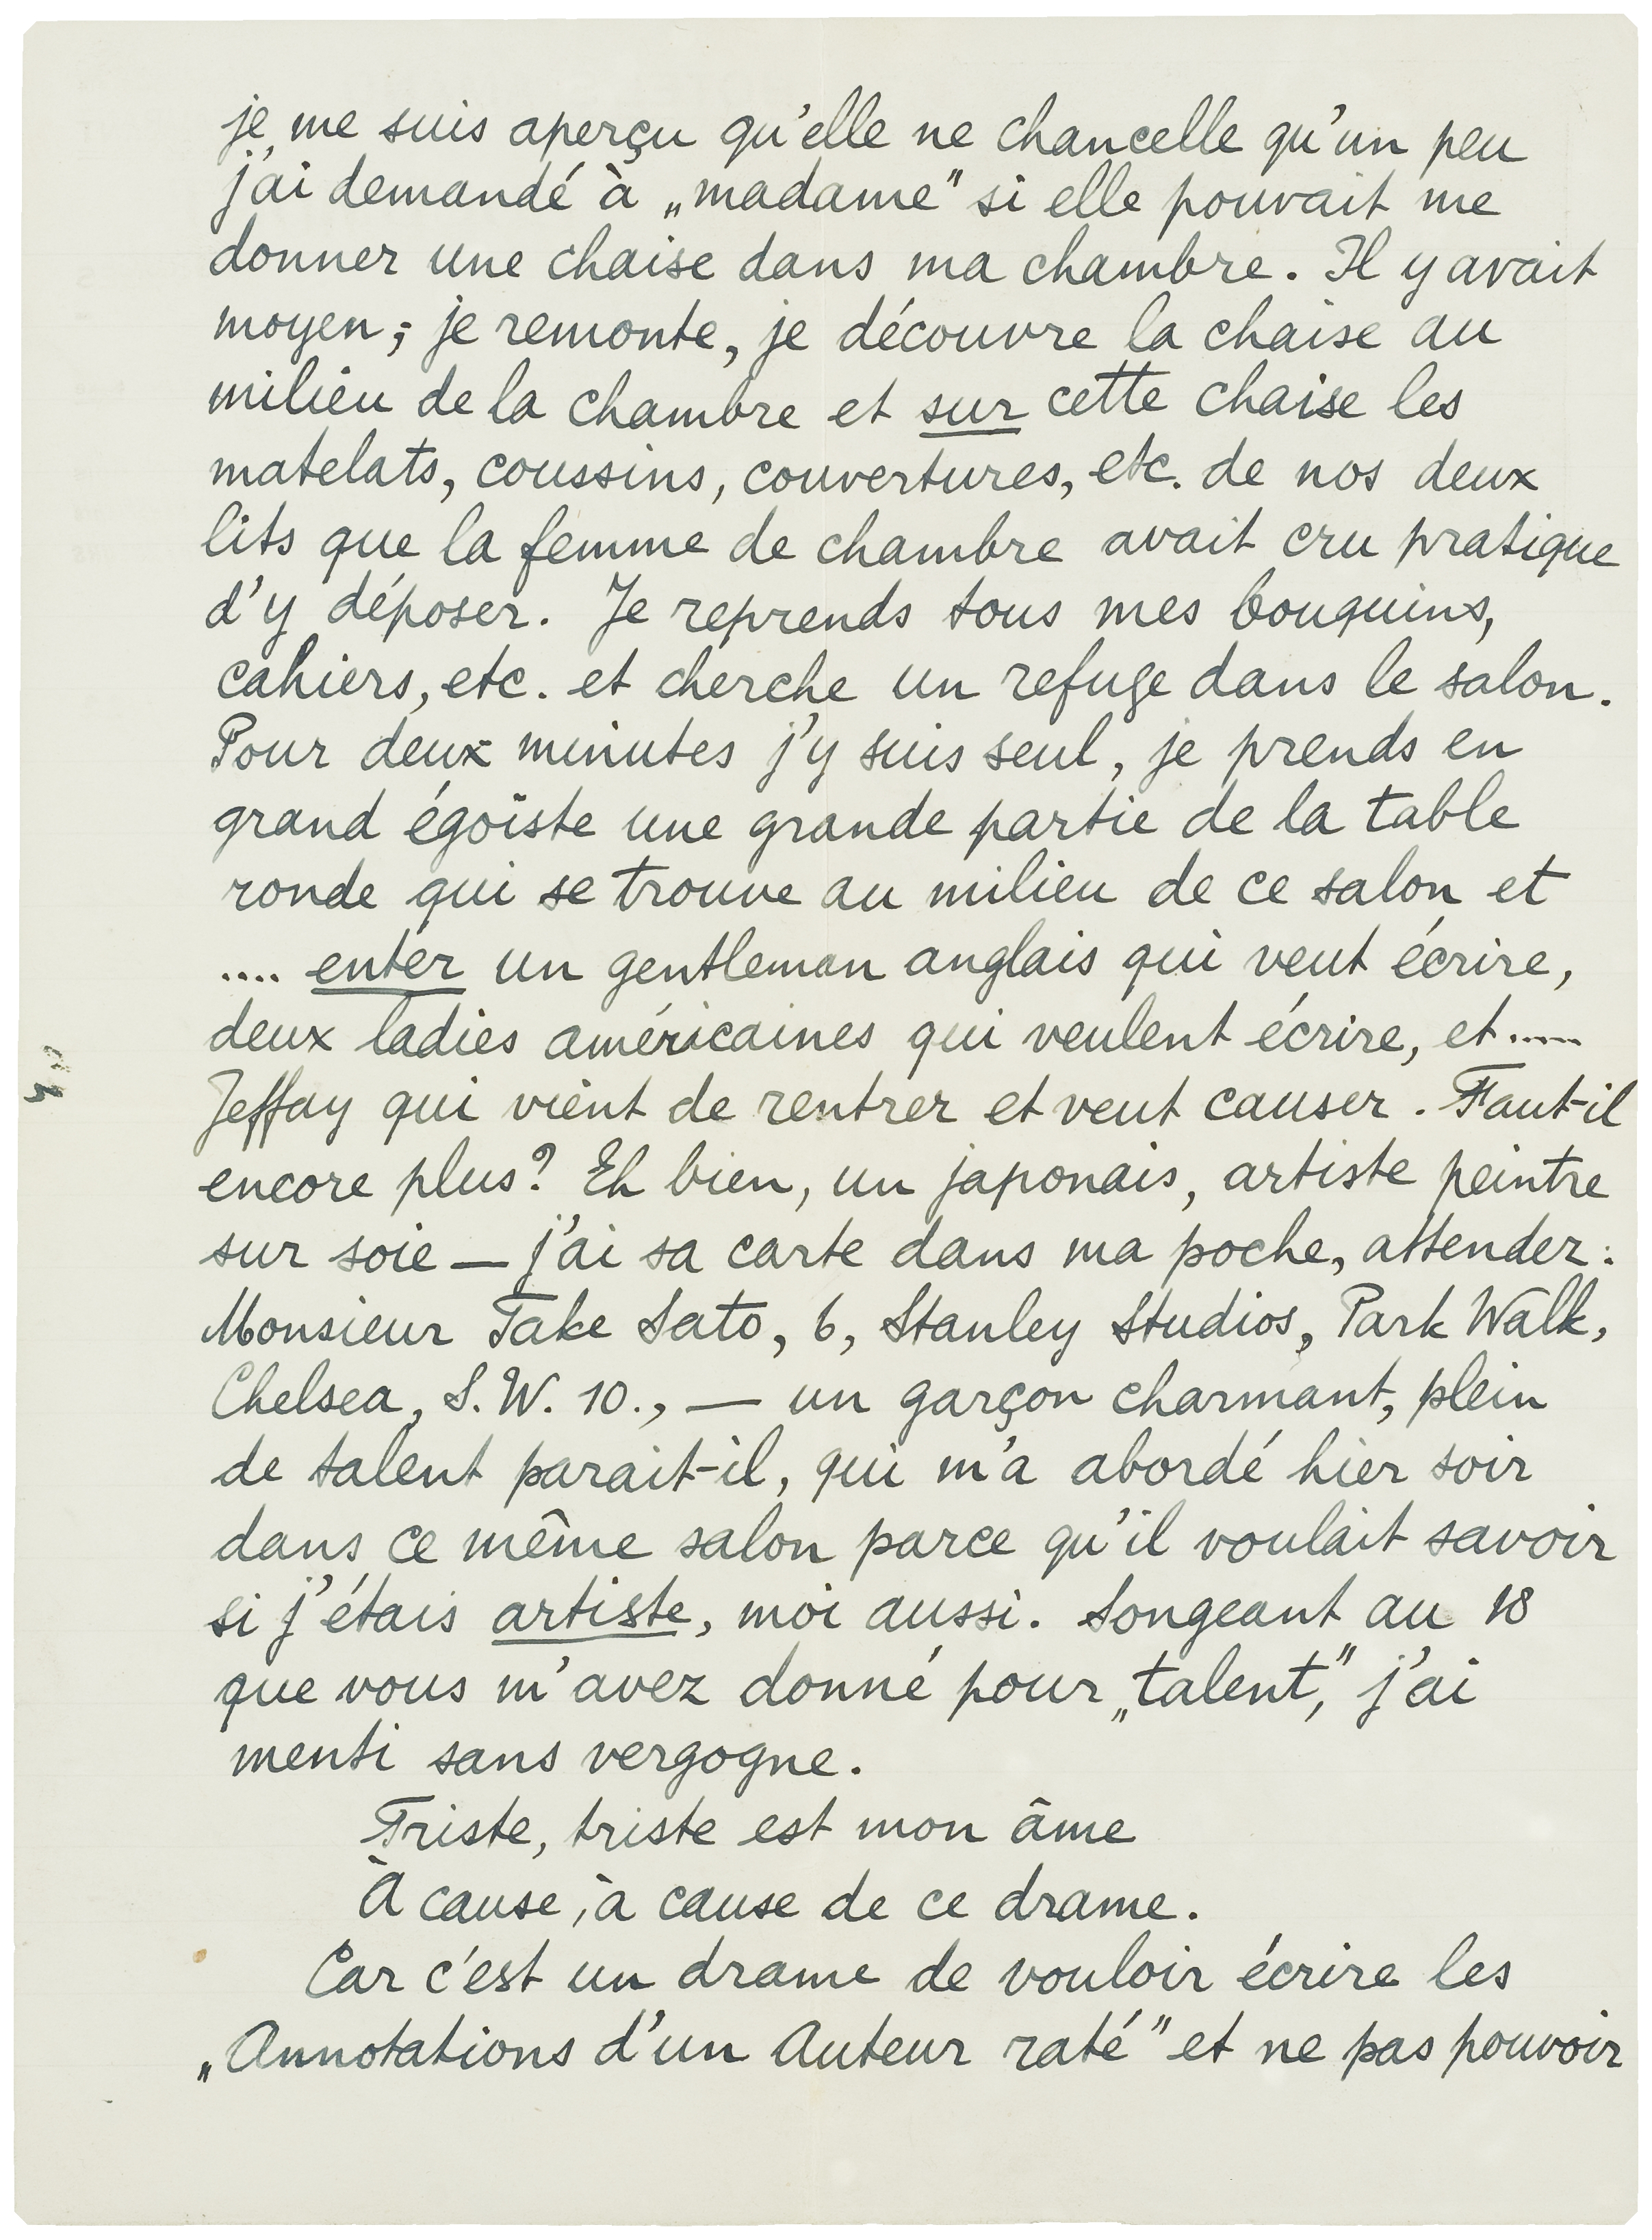 je me suis aperçu qu'elle ne chancelle qu'un peu
j'ai demandé à „madame" si elle pouvait me
donner une chaise dans ma chambre. Il y avait
moyen; je remonte, je découvre la chaise au
milieu de la chambre et sur cette chaise les
matelats, coussins, couvertures, etc. de nos deux
lits que la femme de chambre avait cru pratique
d'y déposer. Je reprends tous mes bouquins,
cahiers, etc. et cherche un refuge dans le salon.
Pour deux minutes j'y suis seul, je prends en
grand égoïste une grande partie de la table
ronde qui se trouve au milieu de ce salon et
.... enter un gentleman anglais qui veut écrire,
deux ladies américaines qui veulent écrire, et .....
Jeffay qui vient de rentrer et veut causer. Faut-il
encore plus? Eh bien, un japonais, artiste peintre
sur soie — j'ai sa carte dans ma poche, attendez:
Monsieur Take Sato, 6, Stanley Studios, Park Walk,
Chelsea, S.W. 10., — un garçon charmant, plein
de talent parait-il, qui m'a abordé hier soir
dans ce même salon parce qu'il voulait savoir
si j'étais artiste, moi aussi. Songeant au 18
que vous m'avez donné pour „talent," j'ai
menti sans vergogne.
Triste, triste est mon âme
À cause, à cause de ce drame.
Car c'est un drame de vouloir écrire les
„Annotations d'un Auteur raté" et ne pas pouvoir